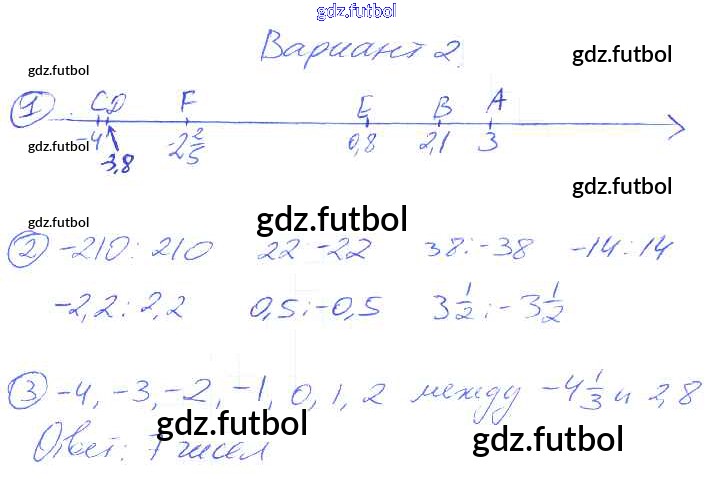 gdz.futbol
Вариант 2
gdz.futbol gdz.futbol
① C D F E B A
-4 -3,8 -2 2/5 0,8 2,1 3
gdz.futbol
gdz.futbol
gdz.futbol gdz.futbol
② -210; 210 22; -22 38; -38 -14; 14
-2,2; 2,2 0,5; -0,5 3 1/2; -3 1/2
③ -4, -3, -2, -1, 0, 1, 2 между -4 1/3 и 2,8
gdz.futbol
Ответ: 7 чисел
gdz.futbol